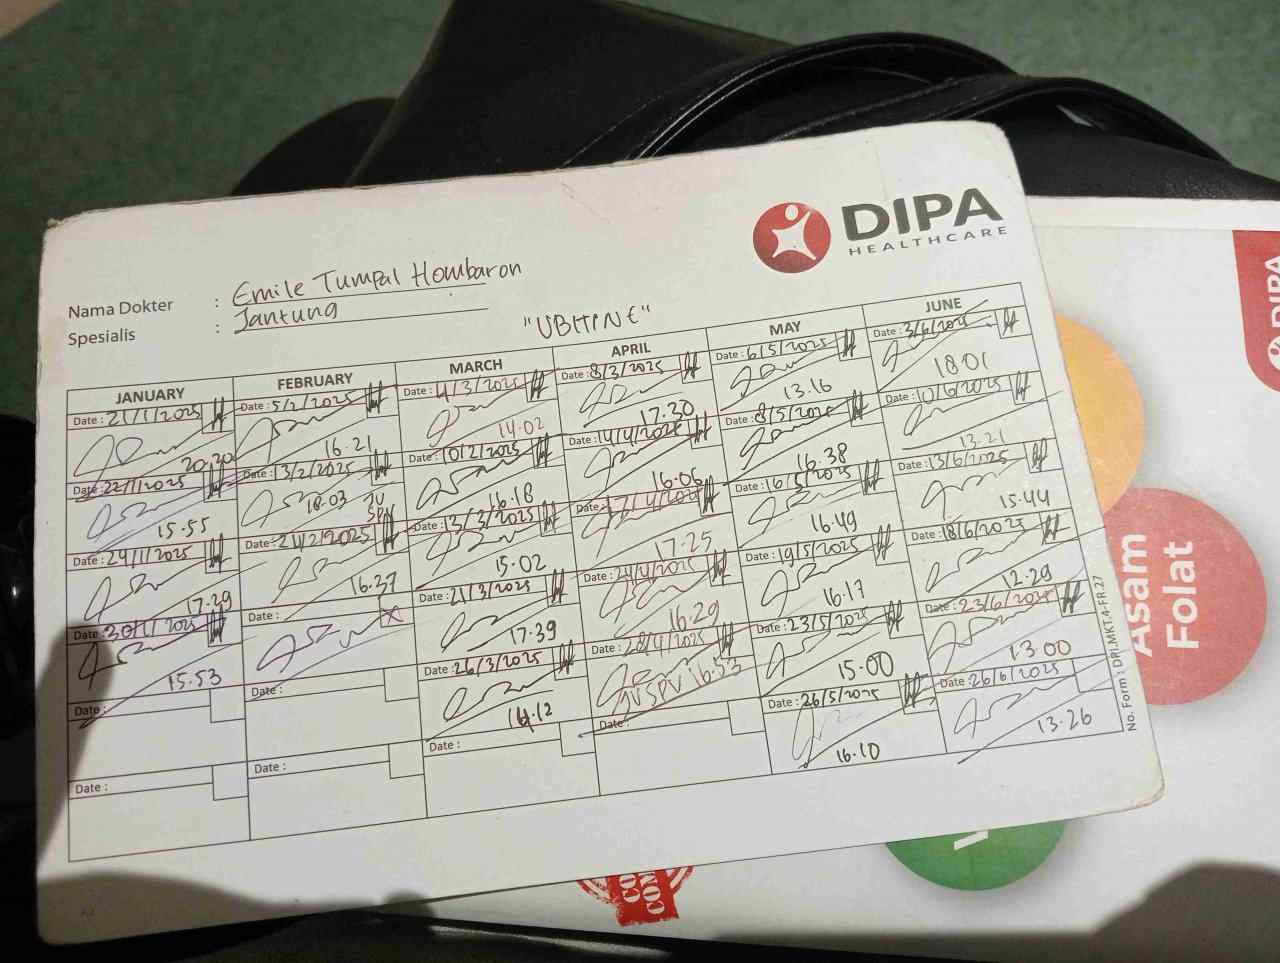 DIPA
HEALTHCARE
Nama Dokter : Emile Tumpal Hombaron
Spesialis : Jantung
"UBHINE"
JANUARY
Date : 21/1/2025
20.20
Date : 22/1/2025
15.55
Date : 24/1/2025
17.29
Date : 30/1/2025
15.53
Date :
Date :
FEBRUARY
Date : 5/2/2025
16.21
Date : 13/2/2025
18.03 JV
SPV
Date : 21/2/2025
16.37
Date :
Date :
Date :
MARCH
Date : 4/3/2025
14.02
Date : 10/2/2025
16.18
Date : 13/3/2025
15.02
Date : 21/3/2025
17.39
Date : 26/3/2025
16.12
Date :
APRIL
Date : 8/3/2025
17.30
Date : 14/4/2025
16.06
Date : 17/4/2025
17.25
Date : 24/4/2025
16.29
Date : 28/4/2025
JVSPV 16.53
Date :
MAY
Date : 6/5/2025
13.16
Date : 8/5/2025
16.38
Date : 16/5/2025
16.49
Date : 19/5/2025
16.17
Date : 23/5/2025
15.00
Date : 26/5/2025
16.10
JUNE
Date : 3/6/2025
18.01
Date : 10/6/2025
13.21
Date : 13/6/2025
15.44
Date : 18/6/2025
12.29
Date : 23/6/2025
13.00
Date : 26/6/2025
13.26
No. Form : DRI.MKT.4-FR.27
Asam
Folat
DIPA